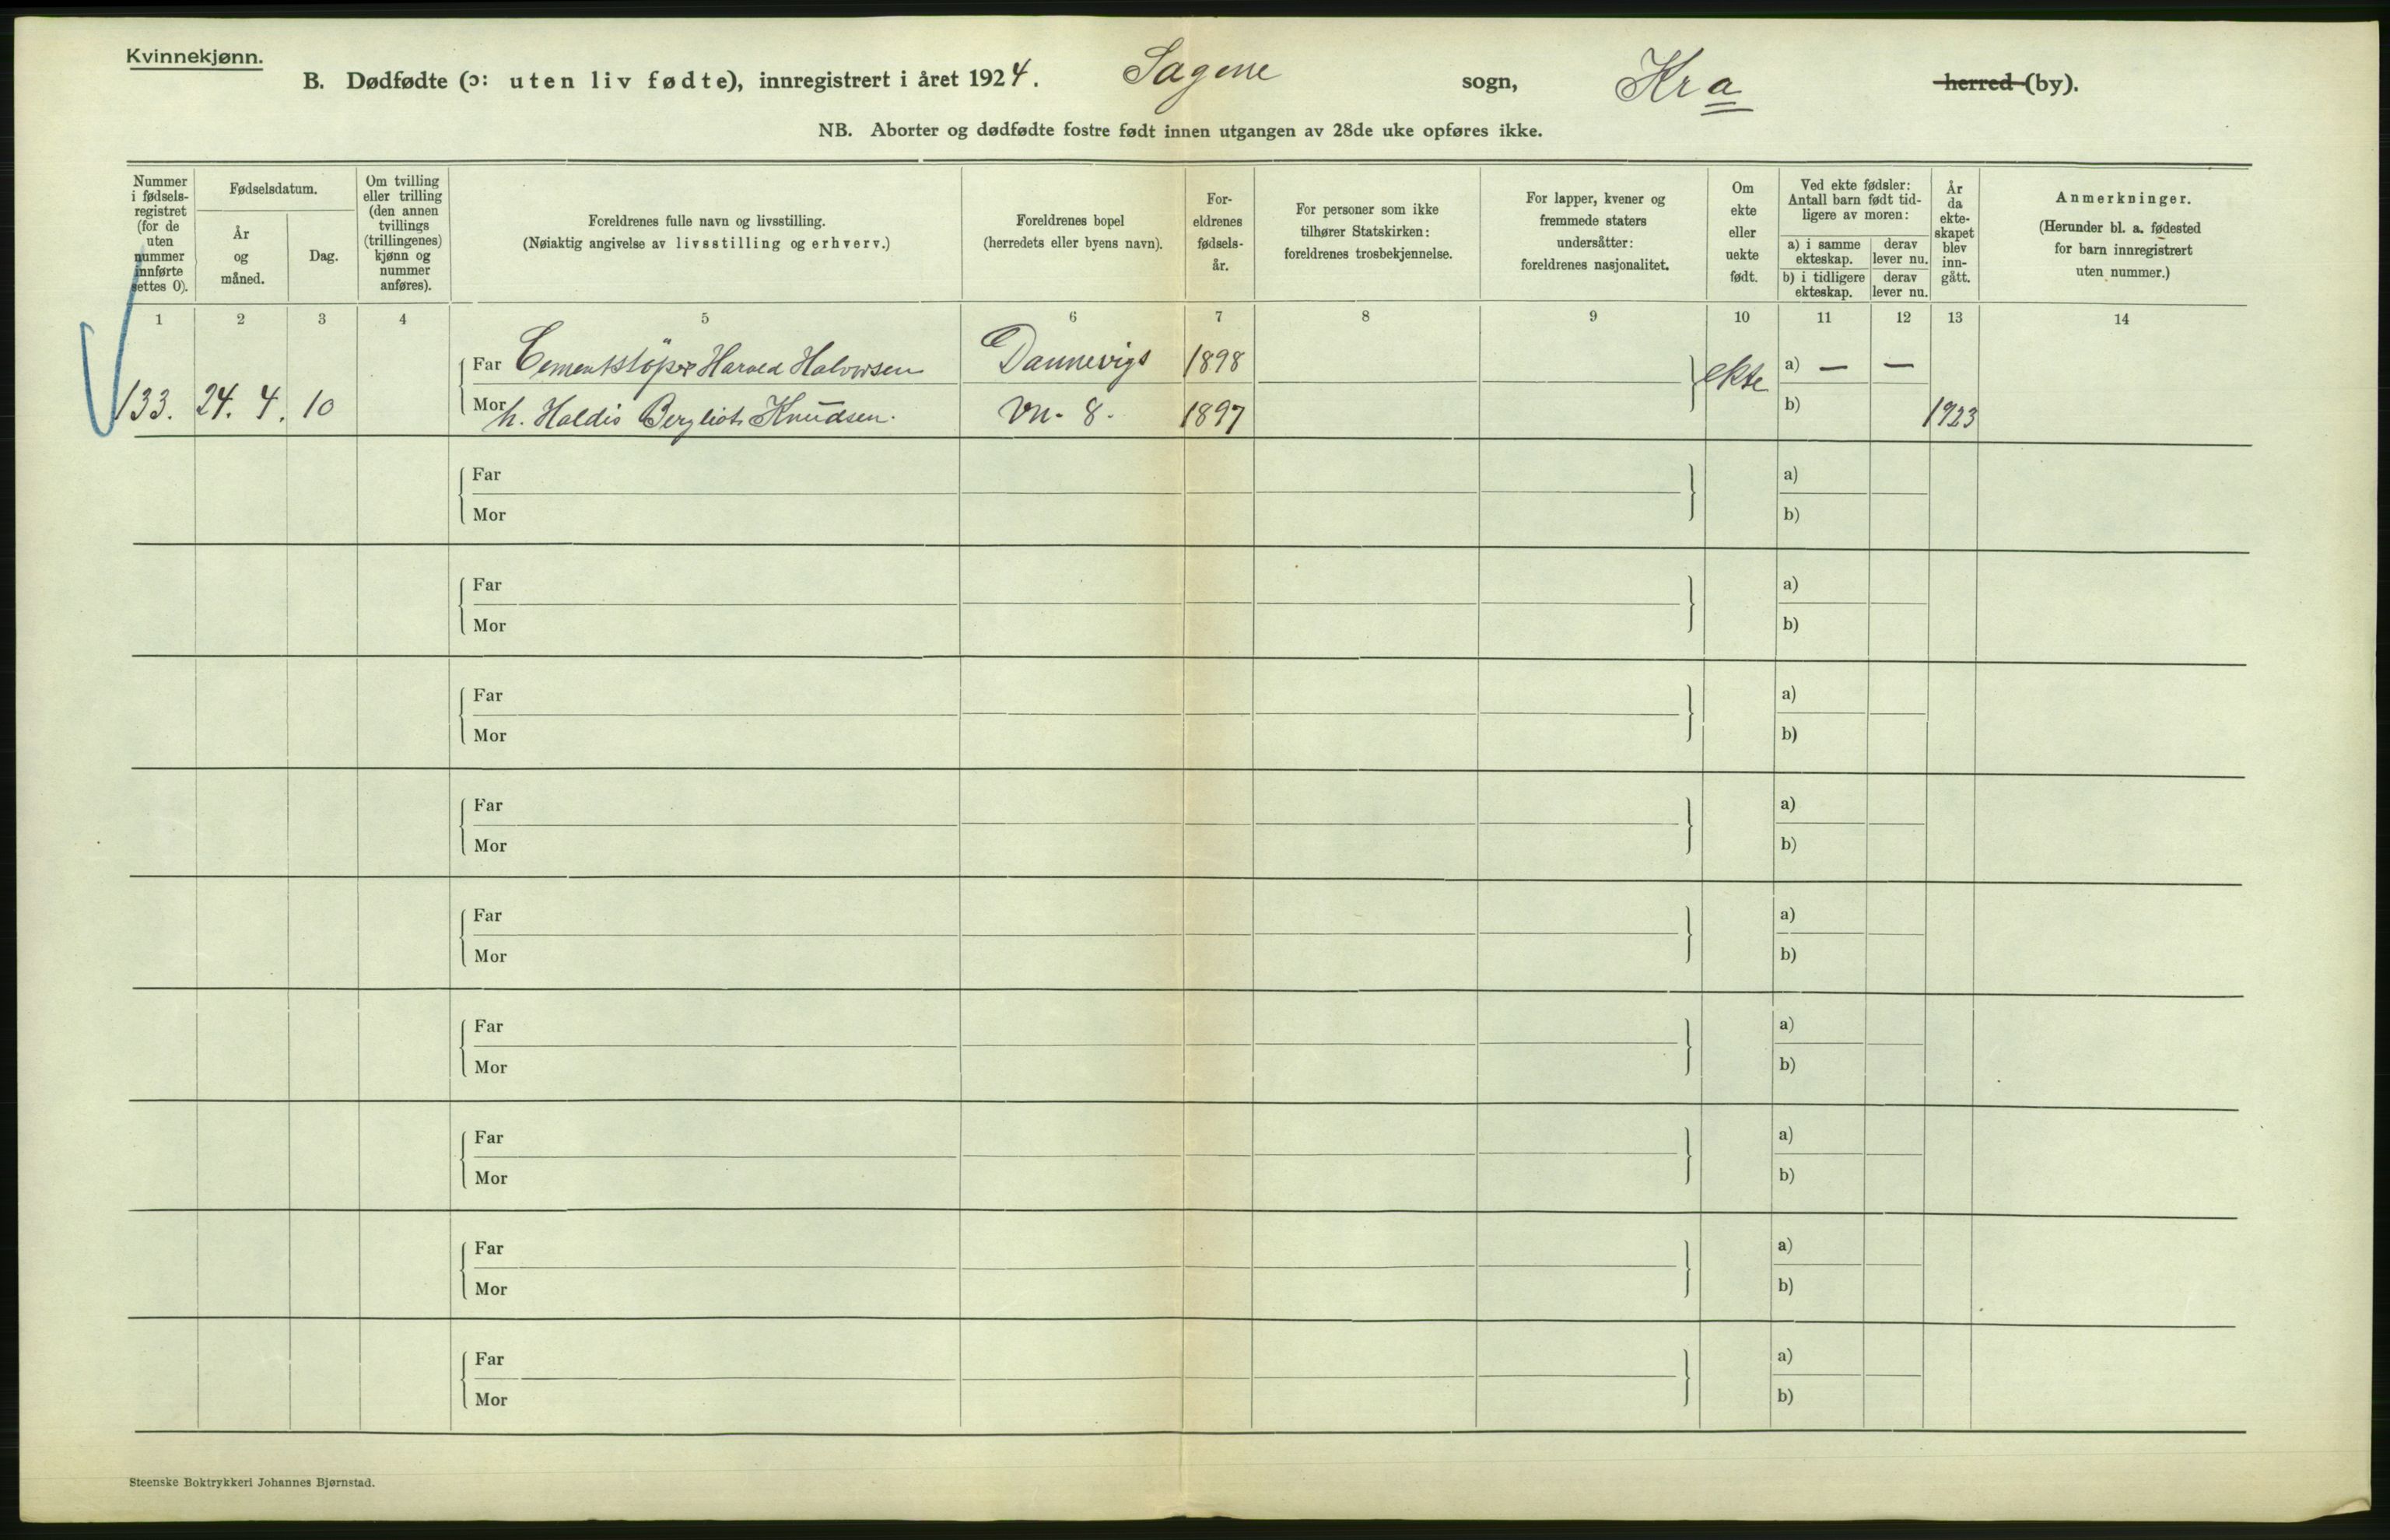 Kvinnekjønn.
B. Dødfødte (ɔ: uten liv fødte), innregistrert i året 1924. Sagene sogn, Kra herred (by).
NB. Aborter og dødfødte fostre født innen utgangen av 28de uke opføres ikke.
Nummer
i fødsels-
registret
(for de
uten
nummer
innførte
settes 0).
Fødselsdatum.
År
og
måned.
Dag.
Om tvilling
eller trilling
(den annen
tvillings
(trillingenes)
kjønn og
nummer
anføres).
Foreldrenes fulle navn og livsstilling.
(Nøiaktig angivelse av livsstilling og erhverv.)
Foreldrenes bopel
(herredets eller byens navn).
For-
eldrenes
fødsels-
år.
For personer som ikke
tilhører Statskirken:
foreldrenes trosbekjennelse.
For lapper, kvener og
fremmede staters
undersåtter:
foreldrenes nasjonalitet.
Om
ekte
eller
uekte
født.
Ved ekte fødsler:
Antall barn født tid-
ligere av moren:
a) i samme
ekteskap.
derav
lever nu.
b) i tidligere
ekteskap.
derav
lever nu.
År
da
ekte-
skapet
blev
inn-
gått.
Anmerkninger.
(Herunder bl. a. fødested
for barn innregistrert
uten nummer.)
1 2 3 4 5 6 7 8 9 10 11 12 13 14
Far Cementstöper Harald Halvorsen Dannevigs 1898 ekte a) — —
133. 24. 4. 10 Mor h. Haldis Bergliot Knudsen. vn. 8. 1897 b) 1923
Far a)
Mor b)
Far a)
Mor b)
Far a)
Mor b)
Far a)
Mor b)
Far a)
Mor b)
Far a)
Mor b)
Far a)
Mor b)
Far a)
Mor b)
Far a)
Mor b)
Steenske Boktrykkeri Johannes Bjørnstad.